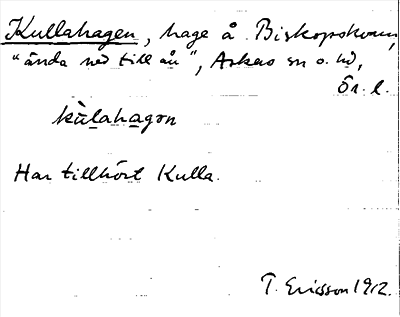 Kullahagen, hage å Biskopskvarn,
"ända ned till ån", Askers sn o. hd,
Ör. l.
kùlahagɷn
Har tillhört Kulla.
T. Ericsson 1912.